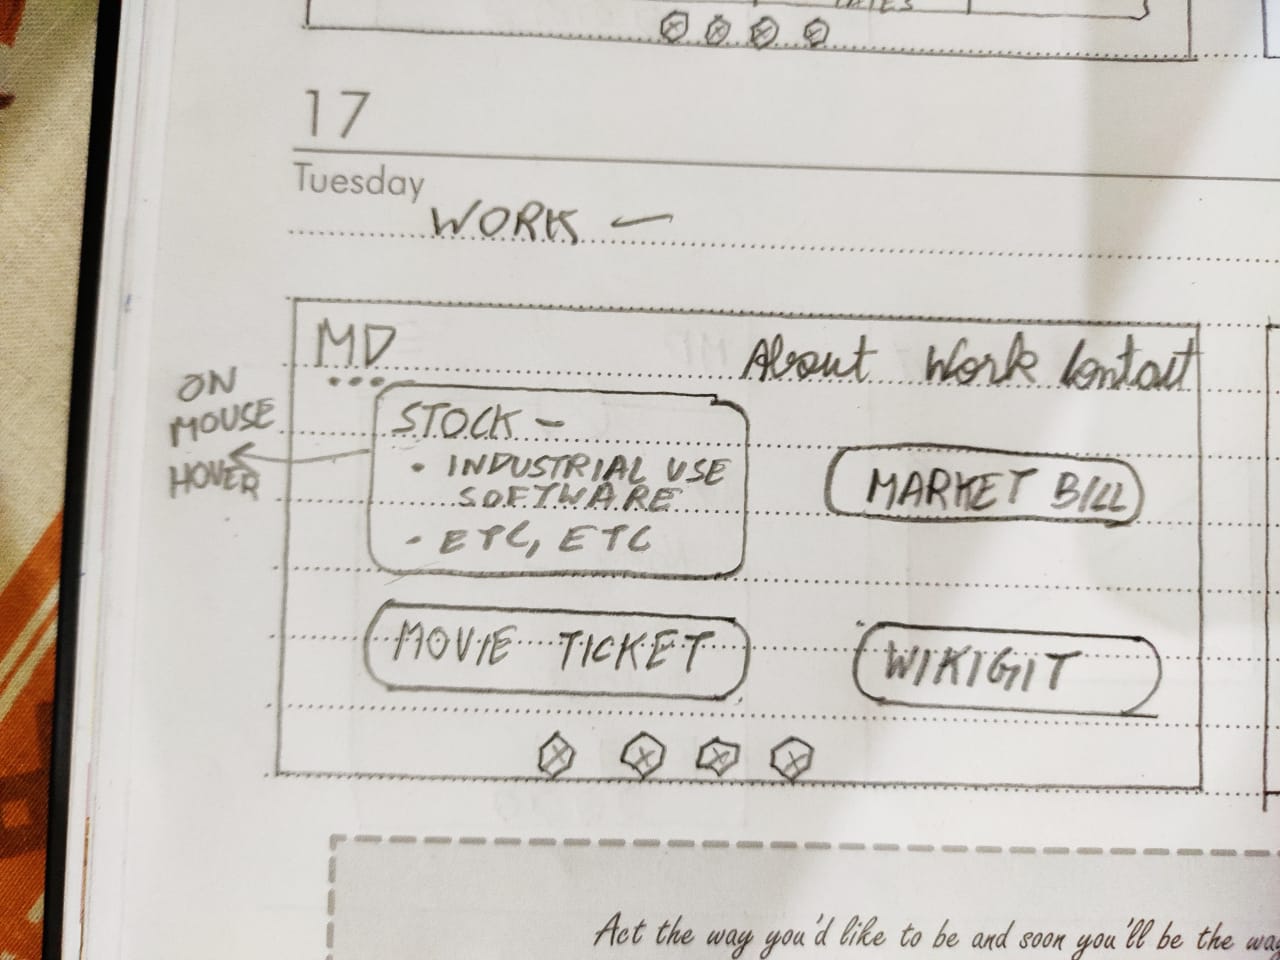 17
Tuesday
WORK —
MD
About Work Contact
ON
MOUSE
HOVER
STOCK –
• INDUSTRIAL USE
SOFTWARE
- ETC, ETC
MARKET BILL
MOVIE TICKET
WIKIGIT
Act the way you'd like to be and soon you'll be the way